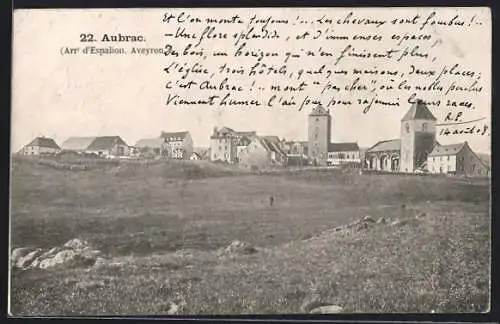 22. Aubrac.
(Arrt d'Espalion. Aveyron
Et l'on monte toujours!.. Les chevaux sont fourbus!..
Une flore splendide, et d'immenses espaces,
Des bois, un horizon qui n'en finissent plus,
L'église, trois hôtels, quelques maisons, deux places;
C'est Aubrac!.. on monte "pas cher", où les nobles perclus
Viennent humer l'air pur pour rajeunir leurs races.
R.P.
14 août 08